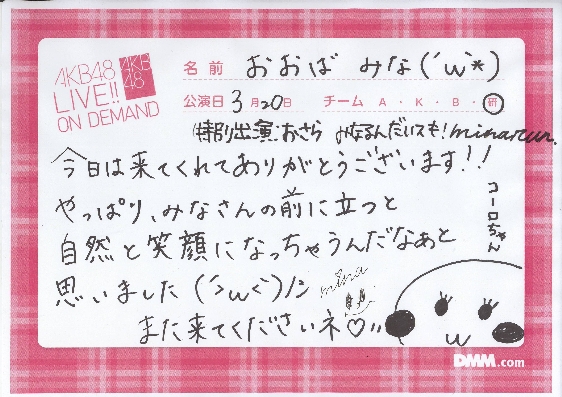 AKB48
LIVE!!
ON DEMAND
AKB
48
名前 おおば みな(´ω`*)
公演日 3月20日 チーム A・K・B・研
今日は来てくれてありがとうございます!!
やっぱり、みなさんの前に立つと
自然と笑顔になっちゃうんだなぁと
思いました(´>ω<`)ﾉｼ
mina
また来てくださいネ♡〃
コーロちゃん
DMM.com